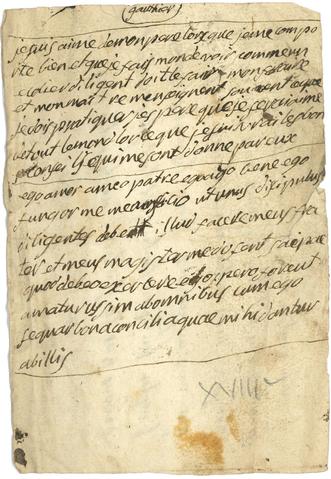 (gauthier)
je suis aimé de mon pere lorsque je me compo
rte bien et que je fais mon devoir comme un
ecolier diligent doit le faire mon frere
et mon maitre me enseignent souvent ce que
je dois pratiquer jespere que je serai aime
de tout le monde lorsque je suivrai les bon
conseils qui me sont donne par eux
ego amor a meo patre eo quo bene ego
fungor me meo officio ut unus discipulus
diligentes debent illud facere meus fra
ter et meus magister me docent saepe
quod debeo exercere ego spero forent
amaturus sim ab ominibus cum ego
sequar bona concilia quae mihi dantur
ab illis
XVIIII